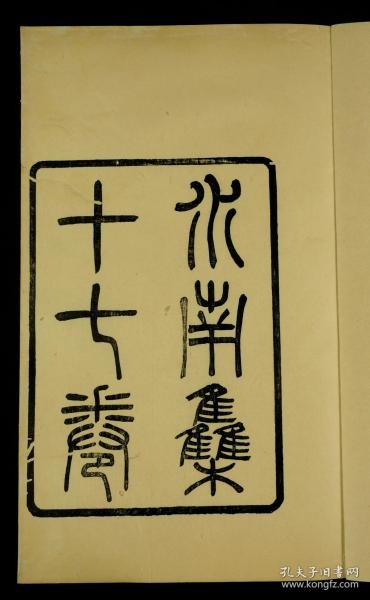 水南集
十七卷
孔夫子旧书网
www.kongfz.com